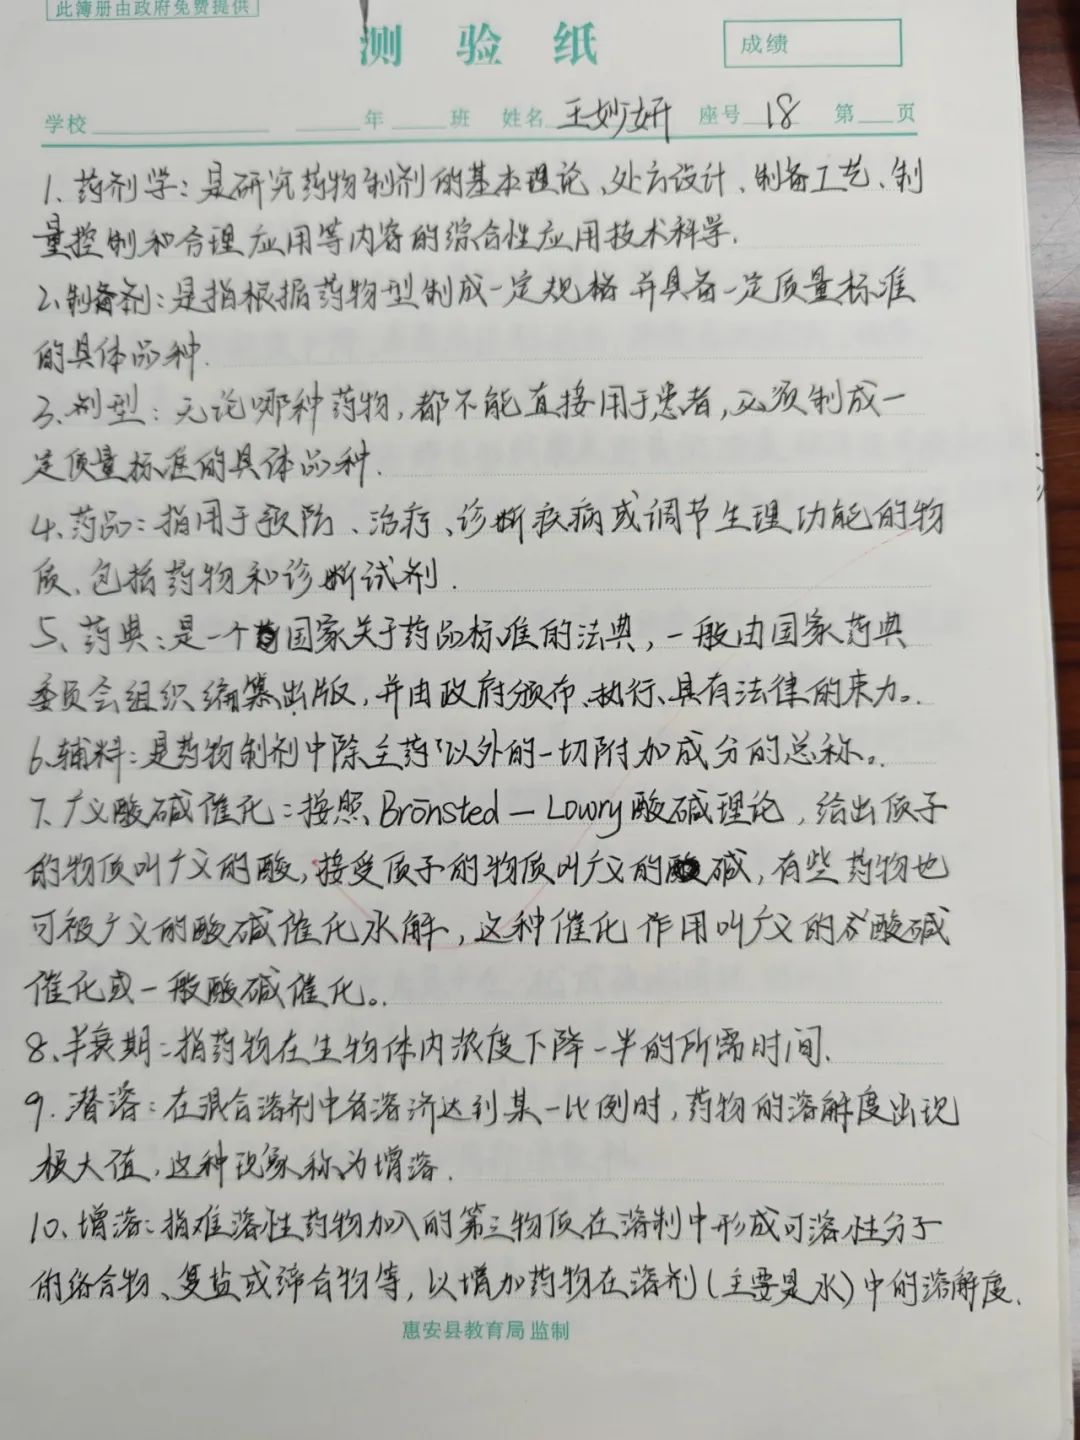 此簿册由政府免费提供
测验纸
成绩
学校 年 班 姓名 王妙妍 座号 18 第 页
1、药剂学：是研究药物制剂的基本理论、处方设计、制备工艺、制
量控制和合理应用等内容的综合性应用技术科学.
2、制剂：是指根据药物型制成一定规格并具备一定质量标准
的具体品种.
3、剂型：无论哪种药物，都不能直接用于患者，必须制成一
定质量标准的具体品种.
4、药品：指用于预防、治疗、诊断疾病或调节生理功能的物
质、包括药物和诊断试剂.
5、药典：是一个国家关于药品标准的法典，一般由国家药典
委员会组织编纂出版，并由政府颁布、执行、具有法律的束力。
6、辅料：是药物制剂中除主药以外的一切附加成分的总称。
7、广义酸碱催化：按照Bronsted—Lowry酸碱理论，给出质子
的物质叫广义的酸，接受质子的物质叫广义的碱，有些药物也
可被广义的酸碱催化水解，这种催化作用叫广义的酸碱
催化或一般酸碱催化。
8、半衰期：指药物在生物体内浓度下降一半的所需时间.
9、潜溶：在混合溶剂中各溶济达到某一比例时，药物的溶解度出现
极大值，这种现象称为增溶.
10、增溶：指难溶性药物加入的第三物质在溶制中形成可溶性分子
的络合物、复盐或缔合物等，以增加药物在溶剂（主要是水）中的溶解度.
惠安县教育局监制